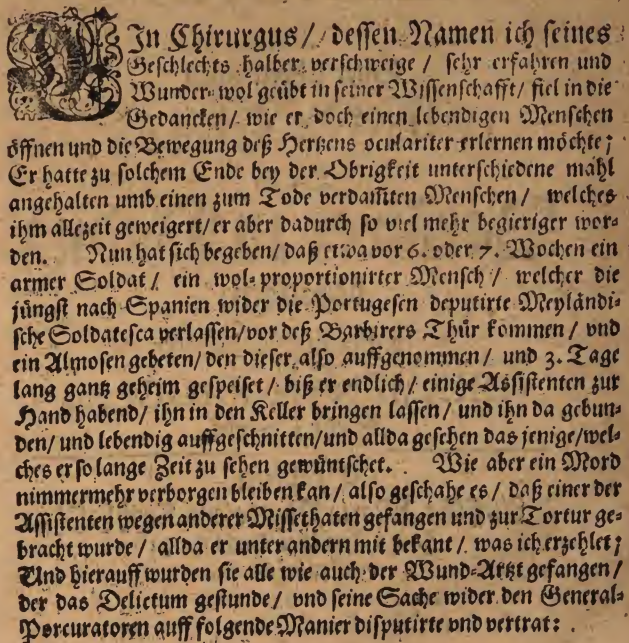 EIn Chirurgus / dessen Namen ich seines
Geschlechts halber verschweige / sehr erfahren und
Wunder-wol geübt in seiner Wissenschafft / fiel in die
Gedancken / wie er doch einen lebendigen Menschen
öffnen und die Bewegung deß Hertzens oculariter erlernen möchte;
Er hatte zu solchem Ende bey der Obrigkeit unterschiedene mahl
angehalten umb einen zum Tode verdam̃ten Menschen / welches
ihm allezeit geweigert / er aber dadurch so viel mehr begieriger wor-
den. Nun hat sich begeben / daß etwa vor 6. oder 7. Wochen ein
armer Soldat / ein wol-proportionirter Mensch / welcher die
jüngst nach Spanien wider die Portugesen deputirte Meyländi-
sche Soldatesca verlassen / vor deß Barbirers Thür kommen / vnd
ein Almosen gebeten / den dieser also auffgenommen / und 3. Tage
lang gantz geheim gespeiset / biß er endlich / einige Assistenten zur
Hand habend / ihn in den Keller bringen lassen / und ihn da gebun-
den / und lebendig auffgeschnitten / und allda gesehen das jenige / wel-
ches er so lange Zeit zu sehen gewüntschet. Wie aber ein Mord
nimmermehr verborgen bleiben kan / also geschahe es / daß einer der
Assistenten wegen anderer Missethaten gefangen und zur Tortur ge-
bracht wurde / allda er unter andern mit bekant / was ich erzehlet;
Und hierauff wurden sie alle wie auch der Wund-Artzt gefangen /
der das Delictum gestunde / vnd seine Sache wider den General-
Porcuratoren auff folgende Manier disputirte vnd vertrat: